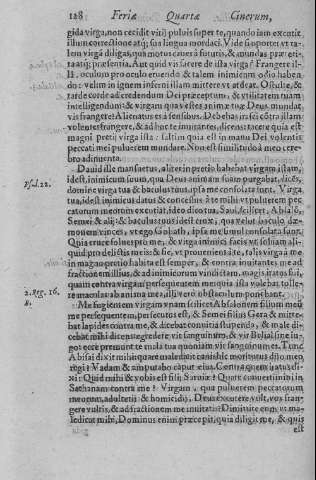 128 Feriæ Quartæ Cinerum,
gida virga, non cecidit vitij puluis super te, quando iam exercitæ
illum correctione atq; suis lingua mordaci. Vide si oportet vt ta-
lem virgā diligas, quæ motus cauet à futuris, & mundas præteri-
ta atq; præsentia. Aut quid vis facere de ista virga? Frangere il-
li, oculum pro oculo eruendo & talem inimicum odio haben-
do: velim in ignem inferni illam mittere vt ardeat. O stulte, &
tarde corde ad credendum Dei præceptum, & vtilitatem tuam
intelligendum: & virgam qua vestes animæ tuæ Deus mundat
vis frangere? Alienatus es à sensibus. Debebas
volente frangere, & adhuc te inuitante, dicens: tacere quia est
magni pretij virga ista: saltim quia est in manu Dei volentis
peccati mei puluerem mundare. Non est similitudo à me cre-
brò adinuenta.
Dauid ille mansuetus, alite in pretio habebat virgam istam,
idest, inimicum suum, qua Deus animam suam purgabat, dicēs,
domine virga tua & baculus tuus, ipsa me consolata sunt. Virga
tua, idest inimicus datus & concessus à te mihi vt puluerem pec-
catorum meorum excutiat, ideo diottus, Saul, scilicet, Absalō,
Semei & alij: & baculus tuus idest crux, qua velut baculo dæ-
mones vinces, vt ego Goliath, ipsa me simul consolata sunt.
Quia cruce foluestpro me, & virga inimici facis vt soluam ali-
quid pro delictis meis: & sic, vt proueniens à te, talis virga à me
in magno pretio habita est semper, & contra inuitantes me ad
fractionem illius, & ad inimicorum vindictam, magis iratus fui,
quam contra virgam persequentem me quia ista volebat tolle-
re maculas ab anima mea, illi verò obstaculum ponebant.
Me fugientem Virgam vnam scilicet Absalonem filium meū
me persequentem, persecutus est, & Semei filius Gera & mitte-
bat lapides contra me, & dicebat conuitia stupenda, & male di-
cebat mihi dicens: egredere, vir sanguinum, & vir Belial sine iu-
go: ecce premunt te mala tua quoniam vir sanguinum es. Tunc
Absai dixit mihi: quare maledicit canis hic moritutus dño meo
regi? Vadam & amputabo caput eius. Contra quem iratus di-
xi: Quid mihi & vobis est filij Saruiæ? Quare conuertimini in
Sathanam contra me? Virgam, qua puluerem peccatorum
meorum, adulterij & homicidij, Deus excutere vult, vos fran-
gere vultis, & ad fractionem me inuitatis? Dimittite eum vt ma-
ledicat mihi, Dominus enim præcepit, quia diligit me, & quis
est
Psal. 22.
2. Reg. 16.
8.